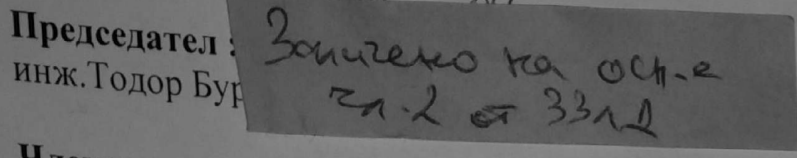 Председател :
инж.Тодор Бур
Заличено на осн-е
чл.2 от ЗЗЛД